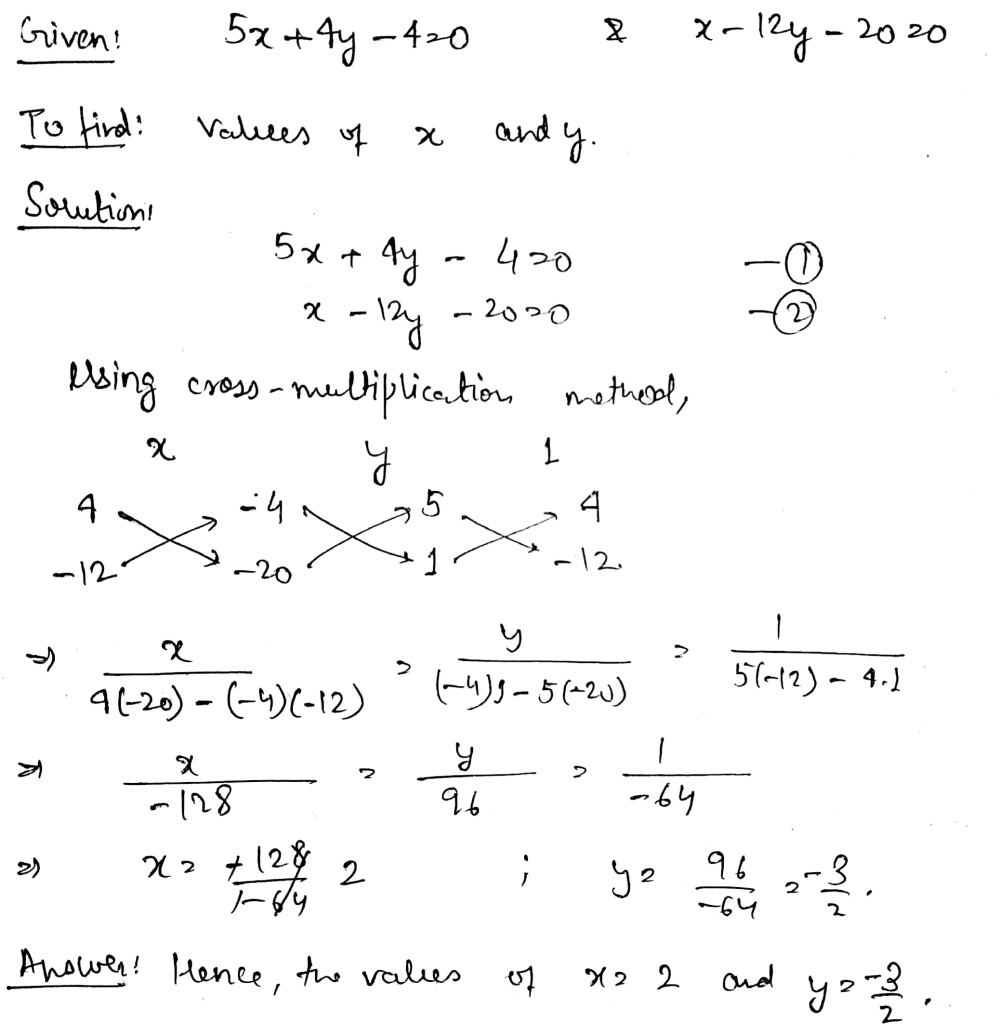 Given: 5x + 4y - 4 = 0 & x - 12y - 20 = 0
To find: Values of x and y.
Solution:
5x + 4y - 4 = 0 - ①
x - 12y - 20 = 0 - ②
Using cross-multiplication method,
x y 1
4 -4 5 4
-12 -20 1 -12
⇒ x/(4(-20) - (-4)(-12)) = y/((-4)1 - 5(-20)) = 1/(5(-12) - 4.1)
⇒ x/-128 = y/96 = 1/-64
⇒ x = +128/+64 2 ; y = 96/-64 = -3/2.
Answer: Hence, the values of x = 2 and y = -3/2.